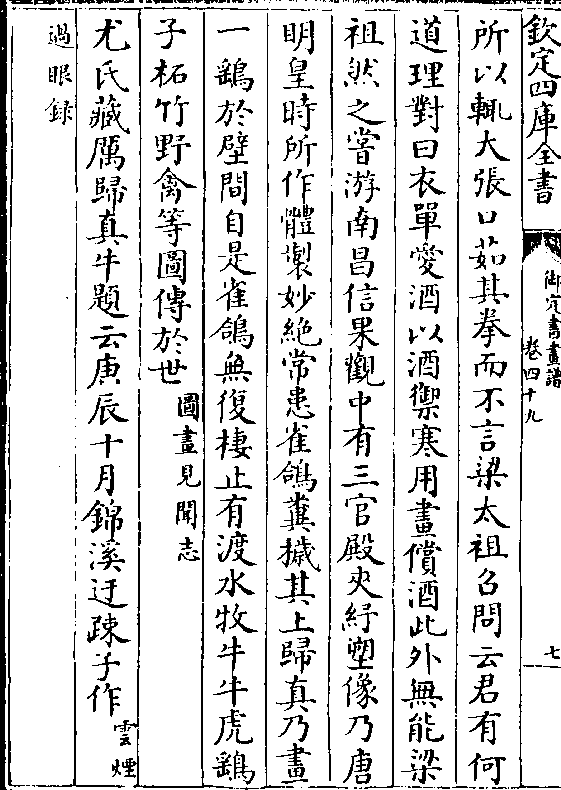 欽定四庫全書
御定書畫譜
卷四十九
七
所以輒大張口茹其拳而不言梁太祖召問云君有何
道理對曰衣單愛酒以酒禦寒用畫償酒此外無能梁
祖然之嘗游南昌信果觀中有三官殿夾紵塑像乃唐
明皇時所作體製妙絶常患雀鴿糞穢其上歸真乃畫
一鷂於壁間自是雀鴿無復棲止有渡水牧牛牛虎鷂
子柘竹野禽等圖傳於世圖畫見聞志
尤氏藏厲歸真牛題云庚辰十月錦溪迂疎子作雲煙
過眼録